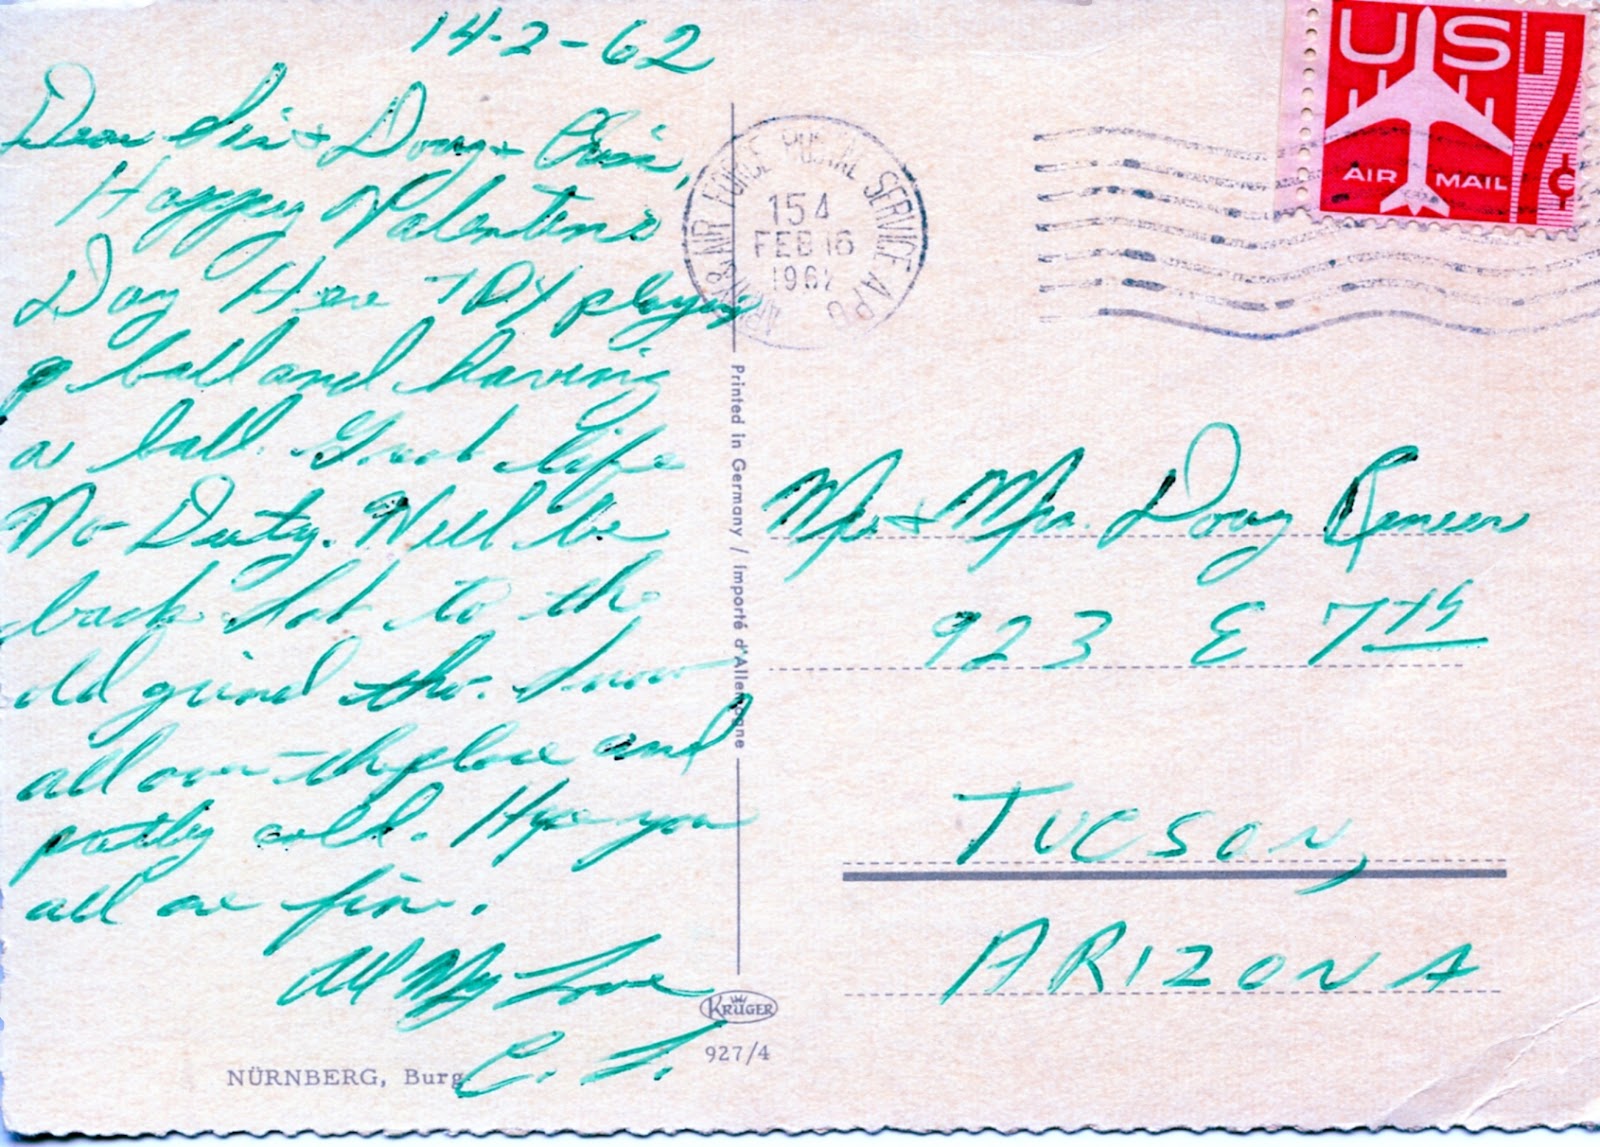 14-2-62
Dear Sis + Doug + Chris,
Happy Valentine
Day Here TDY playing
ball and having
a ball. Great life
No Duty. Will be
back to the
old grind tho. Snow
all over the place and
pretty cold. Hope you
all are fine.
All My Love
C. S.
NÜRNBERG, Burg
Printed in Germany / Importé d'Allemagne
KRÜGER
927/4
AIR FORCE POSTAL SERVICE APO
154
FEB 16
1962
US
7¢
AIR MAIL
Mr + Mrs. Doug
923 E 7th
TUCSON,
ARIZONA